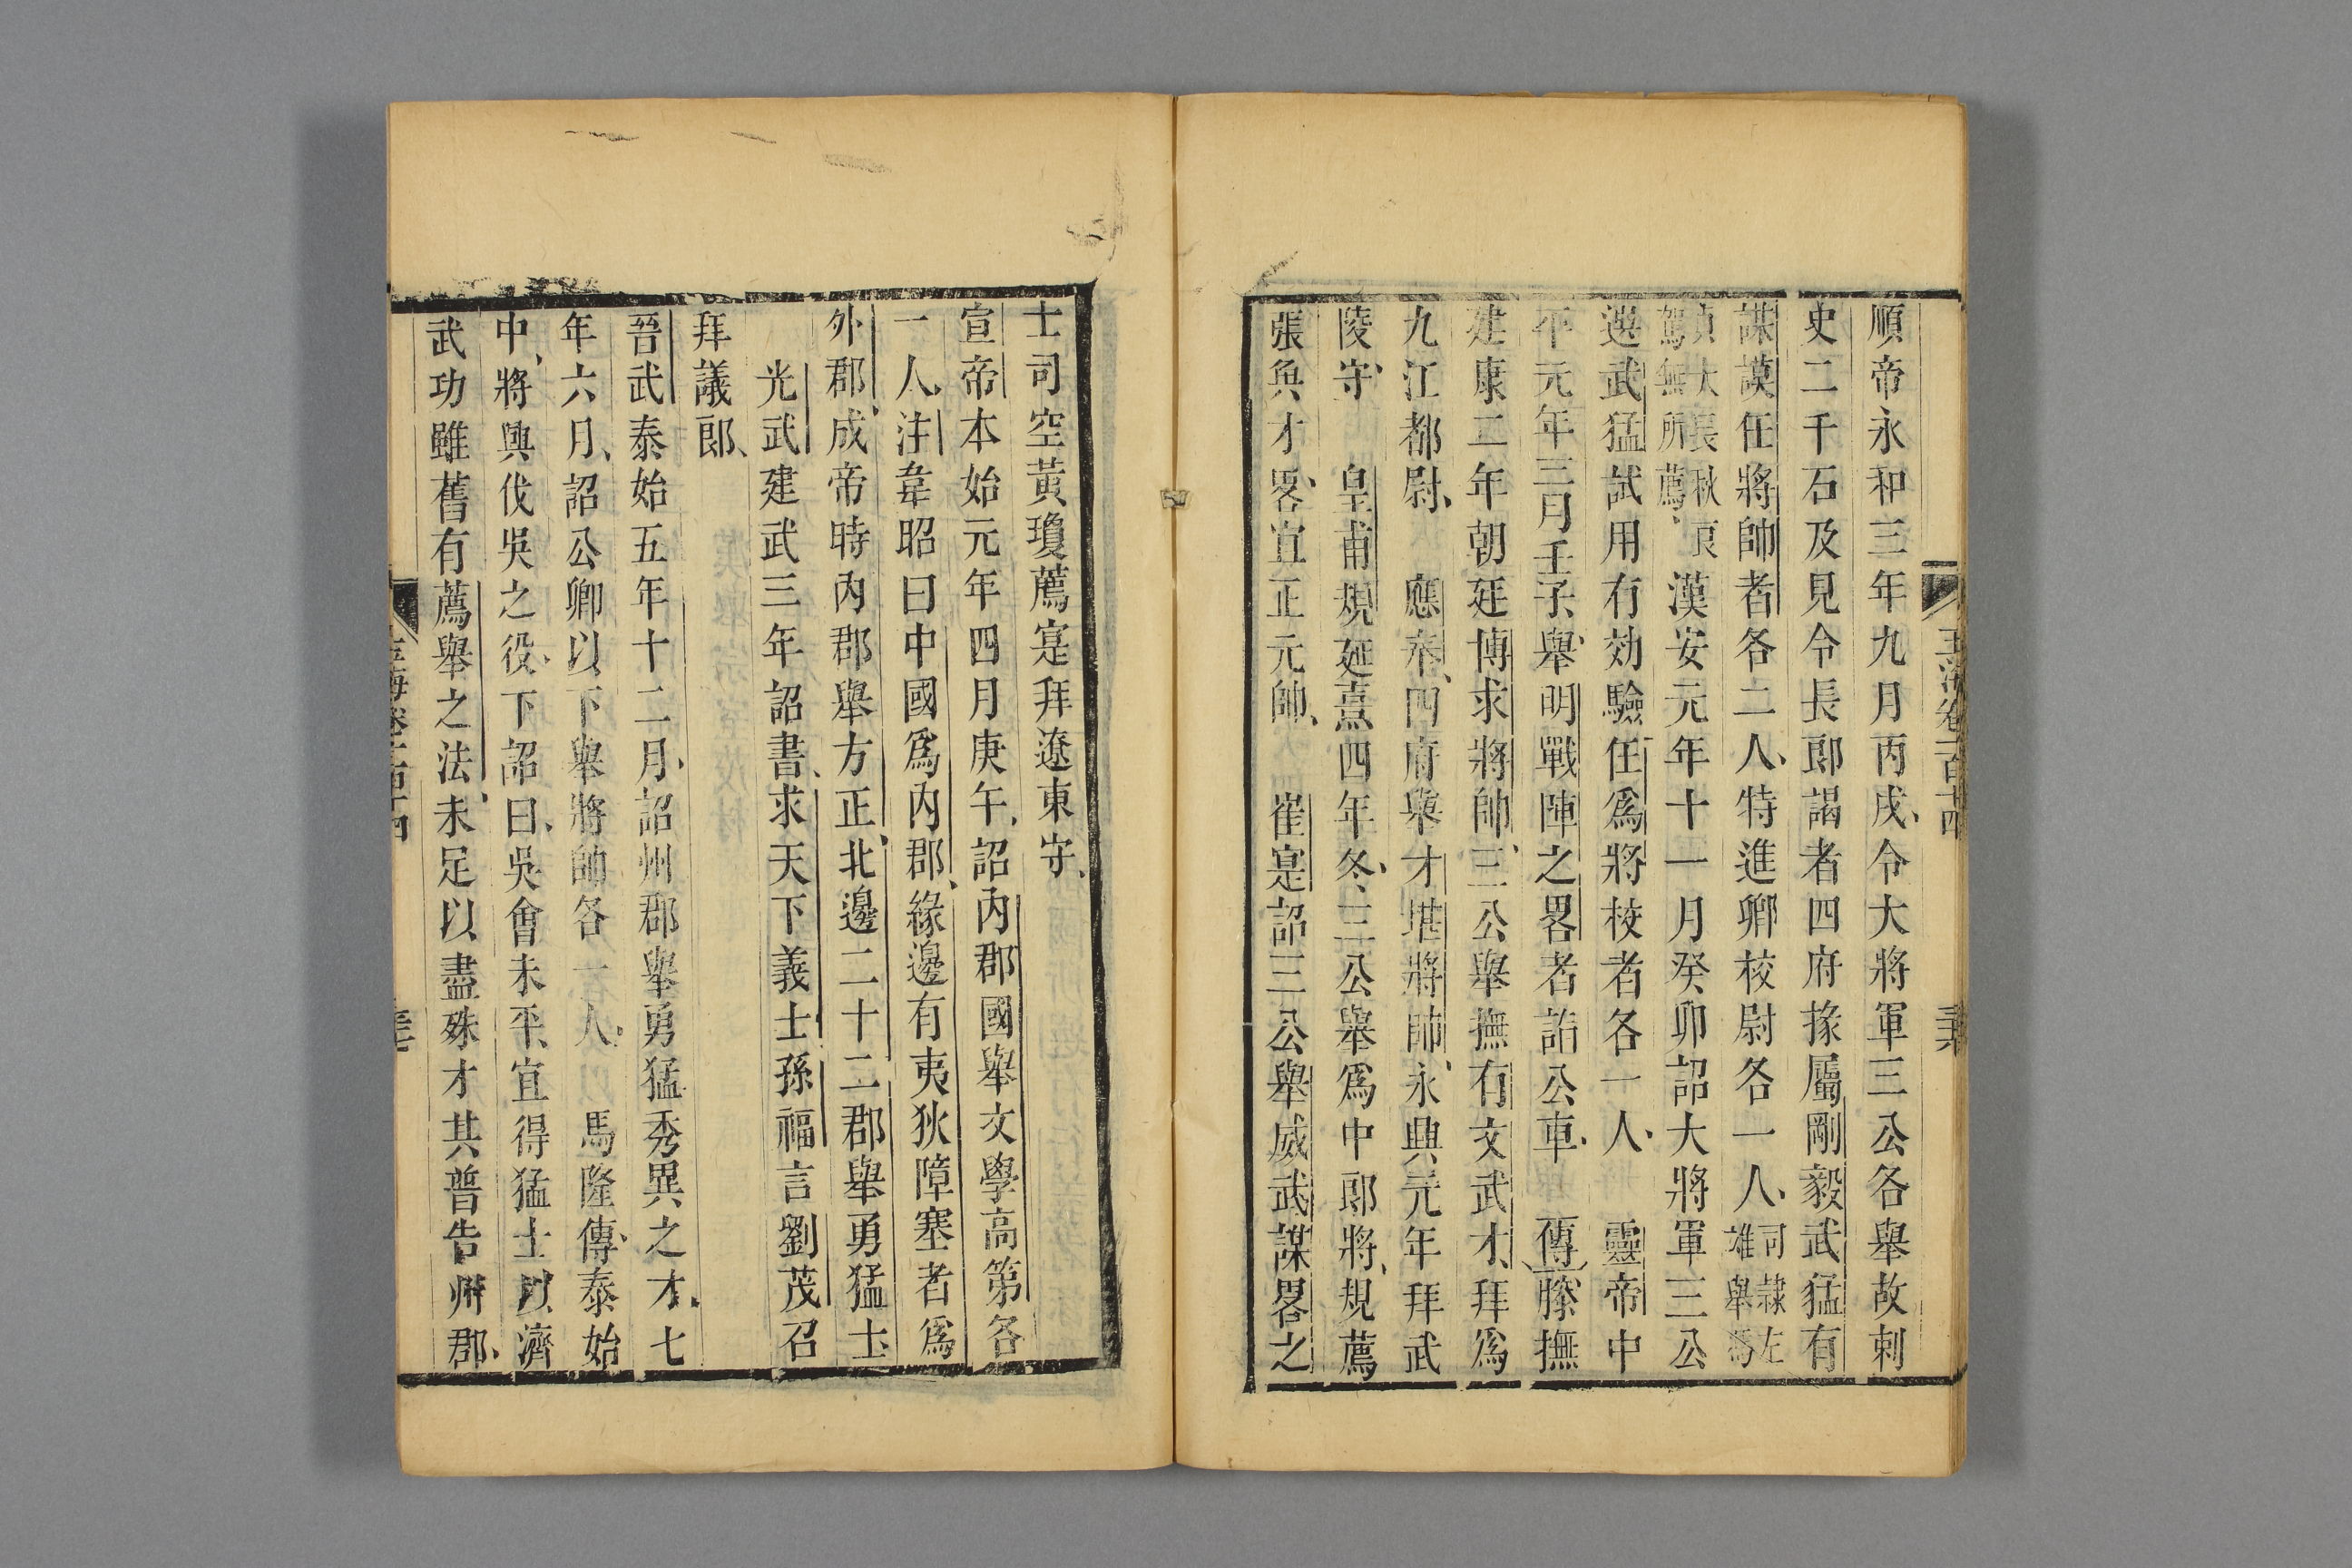 順帝永和三年九月丙戌令大將軍三公各舉故刺
史二千石及見令長郎謁者四府掾屬剛毅武猛有
謀謨任將帥者各二人特進卿校尉各一人司隸左雄舉馮
貞大長秋良駕無所薦漢安元年十一月癸卯詔大將軍三公
選武猛試用有効驗任爲將校者各一人 靈帝中
平元年三月壬子舉明戰陣之畧者詣公車 傳滕撫
建康二年朝廷博求將帥三公舉撫有文武才拜爲
九江都尉 應奉四府舉才堪將帥永興元年拜武
陵守 皇甫規延熹四年冬三公舉爲中郎將規薦
張奐才畧宜正元帥 崔寔詔三公舉威武謀畧之
士司空黃瓊薦寔拜遼東守
宣帝本始元年四月庚午詔內郡國舉文學高第各
一人注韋昭曰中國爲內郡緣邊有夷狄障塞者爲
外郡成帝時內郡舉方正北邊二十二郡舉勇猛士
光武建武三年詔書求天下義士孫福言劉茂召
拜議郎
晉武泰始五年十二月詔州郡舉勇猛秀異之才七
年六月詔公卿以下舉將帥各一人 馬隆傳泰始
中將興伐吳之役下詔曰吳會未平宜得猛士以濟
武功雖舊有薦舉之法未足以盡殊才其普告州郡